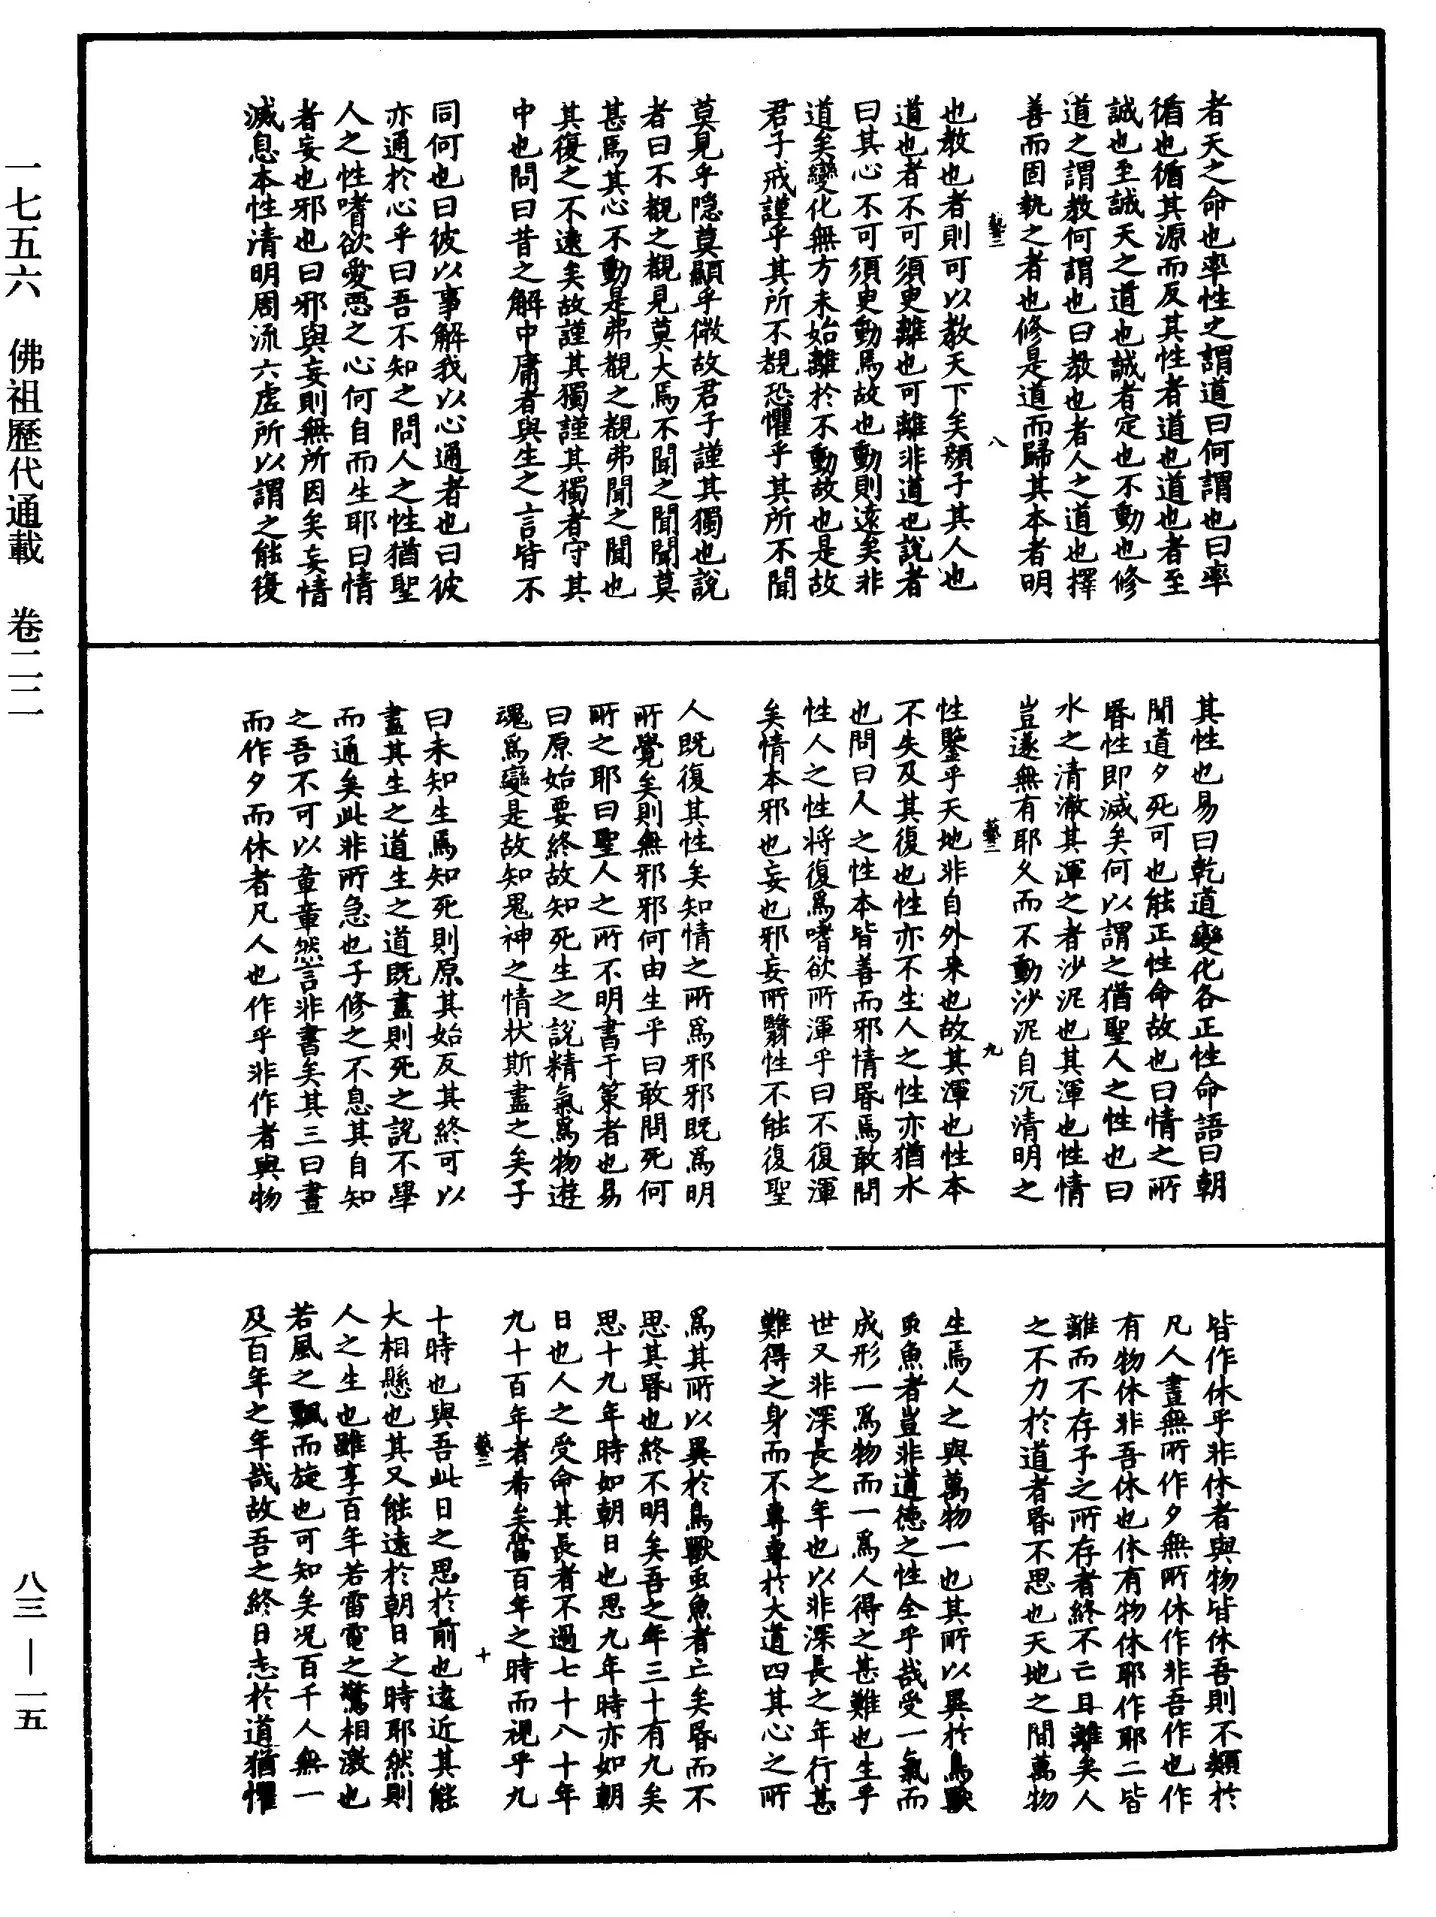 一七五六　佛祖歷代通載　卷二二
八三—一五
者天之命也率性之謂道曰何謂也曰率
循也循其源而反其性者道也道也者至
誠也至誠天之道也誠者定也不動也修
道之謂教何謂也曰教也者人之道也擇
善而固執之者也修是道而歸其本者明
藝二　八
也教也者則可以教天下矣顏子其人也
道也者不可須臾離也可離非道也說者
曰其心不可須臾動焉故也動則遠矣非
道矣變化無方未始離於不動故也是故
君子戒謹乎其所不覩恐懼乎其所不聞
莫見乎隱莫顯乎微故君子謹其獨也說
者曰不覩之覩見莫大焉不聞之聞聞莫
甚焉其心不動是弗覩之覩弗聞之聞也
其復之不遠矣故謹其獨謹其獨者守其
中也問曰昔之解中庸者與生之言皆不
同何也曰彼以事解我以心通者也曰彼
亦通於心乎曰吾不知之問人之性猶聖
人之性嗜欲愛惡之心何自而生耶曰情
者妄也邪也曰邪與妄則無所因矣妄情
滅息本性清明周流六虛所以謂之能復
其性也易曰乾道變化各正性命語曰朝
聞道夕死可也能正性命故也曰情之所
昬性即滅矣何以謂之猶聖人之性也曰
水之清澈其渾之者沙泥也其渾也性情
豈遂無有耶久而不動沙泥自沉清明之
藝二　九
性鑒乎天地非自外来也故其渾也性本
不失及其復也性亦不生人之性亦猶水
也問曰人之性本皆善而邪情昬焉敢問
性人之性將復爲嗜欲所渾乎曰不復渾
矣情本邪也妄也邪妄所翳性不能復聖
人既復其性矣知情之所爲邪邪既爲明
所覺矣則無邪邪何由生乎曰敢問死何
所之耶曰聖人之所不明書于策者也易
曰原始要終故知死生之說精氣爲物遊
魂爲變是故知鬼神之情狀斯盡之矣子
曰未知生焉知死則原其始反其終可以
盡其生之道生之道既盡則死之說不學
而通矣此非所急也子修之不息其自知
之吾不可以章章然言非書矣其三曰晝
而作夕而休者凡人也作乎非作者與物
皆作休乎非休者與物皆休吾則不類於
凡人晝無所作夕無所休作非吾作也作
有物休非吾休也休有物休耶作耶二皆
離而不存予之所存者終不亡且離矣人
之不力於道者昬不思也天地之間萬物
生焉人之與萬物一也其所以異於鳥獸
虫魚者豈非道德之性全乎哉受一氣而
成形一爲物而一爲人得之甚難也生乎
世又非深長之年也以非深長之年行甚
難得之身而不專專於大道四其心之所
爲其所以異於鳥獸虫魚者亡矣昬而不
思其昬也終不明矣吾之年三十有九矣
思十九年時如朝日也思九年時亦如朝
日也人之受命其長者不過七十八十年
九十百年者希矣當百年之時而視乎九
藝二　十
十時也與吾此日之思於前也遠近其能
大相懸也其又能遠於朝日之時耶然則
人之生也雖享百年若雷電之驚相激也
若風之飄而旋也可知矣况百千人無一
及百年之年哉故吾之終日志於道猶懼